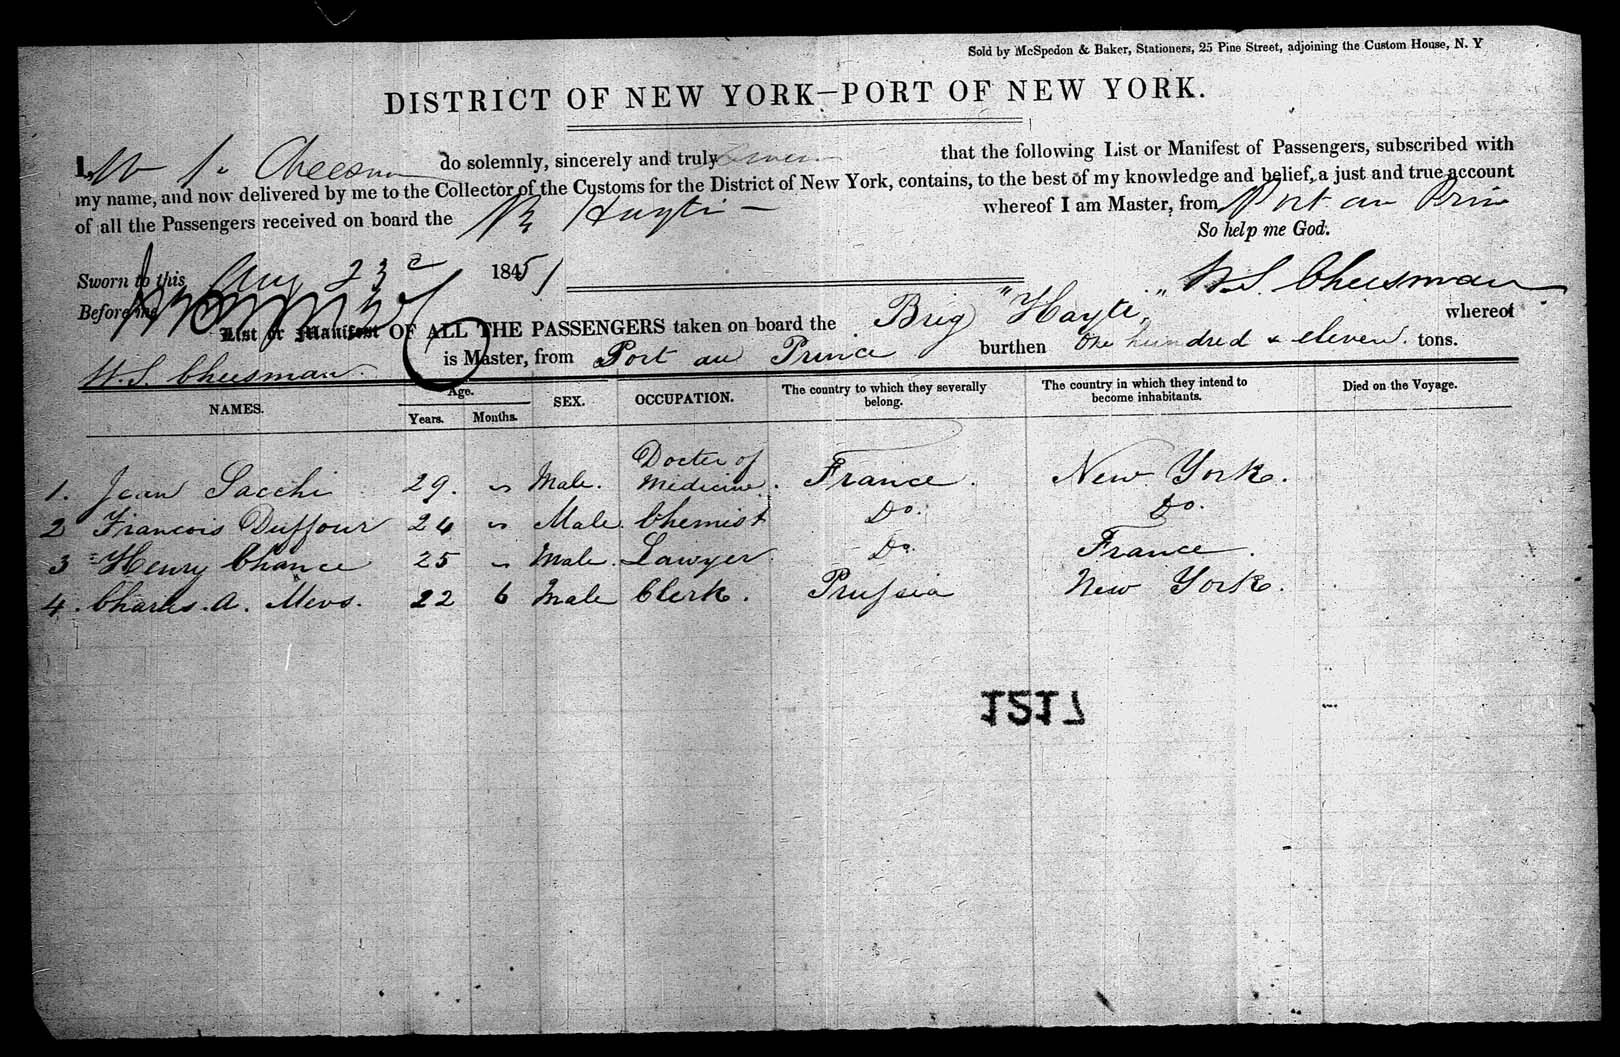 Sold by McSpedon & Baker, Stationers, 25 Pine Street, adjoining the Custom House, N. Y
DISTRICT OF NEW YORK—PORT OF NEW YORK.
I, W S. Cheesman do solemnly, sincerely and truly swear that the following List or Manifest of Passengers, subscribed with
my name, and now delivered by me to the Collector of the Customs for the District of New York, contains, to the best of my knowledge and belief, a just and true account
of all the Passengers received on board the Br Hayti — whereof I am Master, from Port au Prin
So help me God.
Sworn to this Aug 23d 1851
W. S. Cheesman
Before me
List or Manifest OF ALL THE PASSENGERS taken on board the Brig "Hayti," whereof
W. S. Cheesman is Master, from Port au Prince burthen One hundred & eleven tons.
NAMES. Age. Years. Months. SEX. OCCUPATION. The country to which they severally belong. The country in which they intend to become inhabitants. Died on the Voyage.
1. Jean Sacchi 29. " Male. Docter of Medicine. France. New York.
2 Francois Duffour 24 " Male. Chemist Do. Do.
3 Henry Chance 25 " Male. Lawyer Do. France.
4. Charles. A. Mevs. 22 6 Male Clerk. Prussia New York.
1217